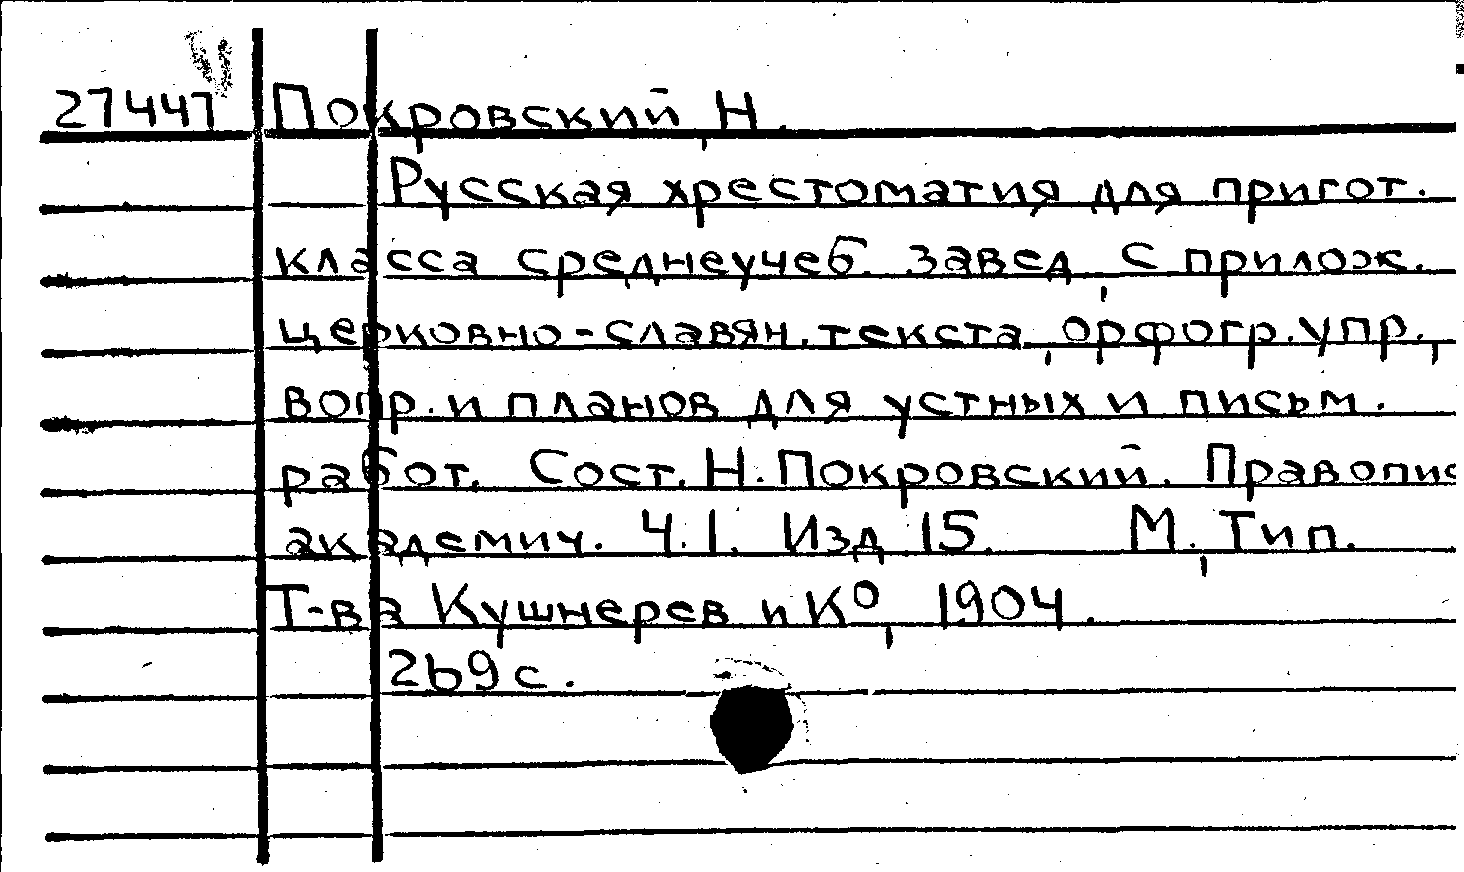 27447 Покровский, Н.
Русская хрестоматия для пригот.
класса среднеучеб. завед., с прилож.
церковно-славян. текста, орфогр. упр.,
вопр. и планов для устных и письм.
работ. Сост. Н. Покровский. Правопис
академич. Ч. 1. Изд 15. М., Тип.
Т-ва Кушнерев и К⁰, 1904.
269 с.